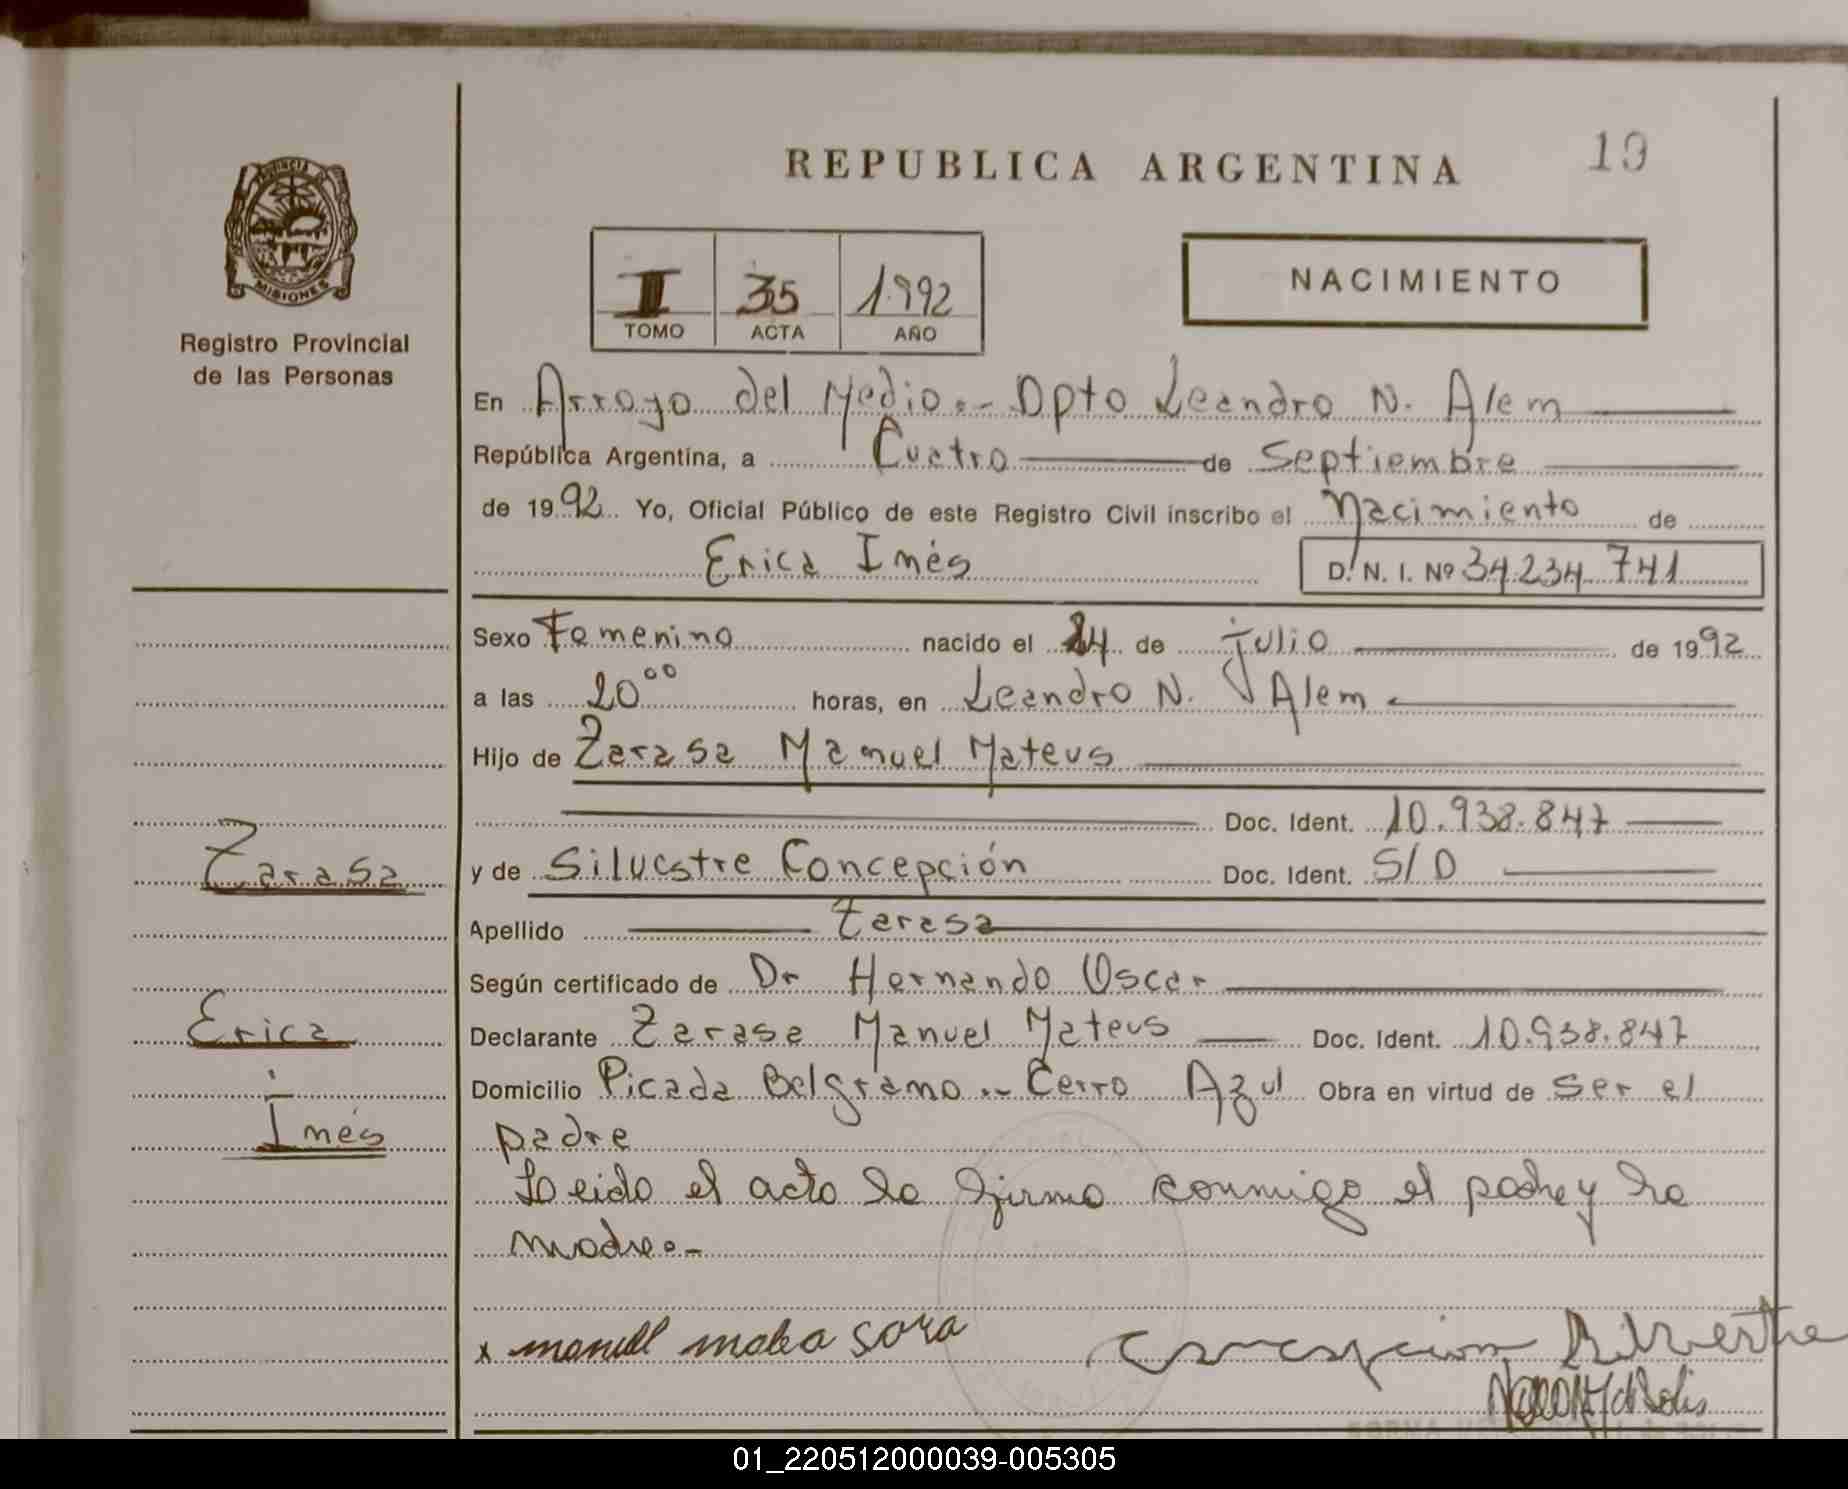 REPUBLICA ARGENTINA
19
PROVINCIA DE
MISIONES
Registro Provincial
de las Personas
II 35 1.992
TOMO ACTA AÑO
NACIMIENTO
En Arroyo del Medio.- Dpto Leandro N. Alem
República Argentina, a Cuatro de Septiembre
de 1992 Yo, Oficial Público de este Registro Civil inscribo el Nacimiento de
Erica Inés D. N. I. Nº 34.234.741
Sexo Femenino nacido el 24 de julio de 1992
a las 20⁰⁰ horas, en Leandro N. Alem
Hijo de Zarasa Manuel Mateus
Doc. Ident. 10.938.847
y de Silvestre Concepción Doc. Ident. S/D
Apellido Zarasa
Según certificado de Dr Hernando Oscar
Declarante Zarasa Manuel Mateus Doc. Ident. 10.938.847
Domicilio Picada Belgrano.- Cerro Azul Obra en virtud de ser el
padre
Leido el acto la firma conmigo el padre y la
madre.-
Zarasa
Erica
Inés
x manuel sara
Concepcion Silvestre
01_220512000039-005305